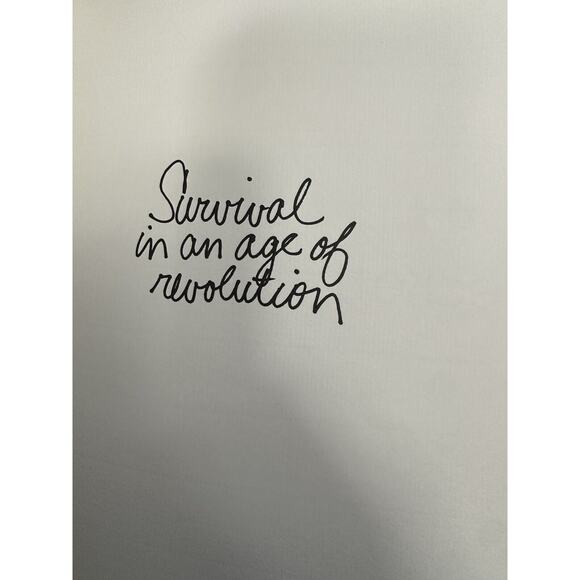 Survival
in an age of
revolution